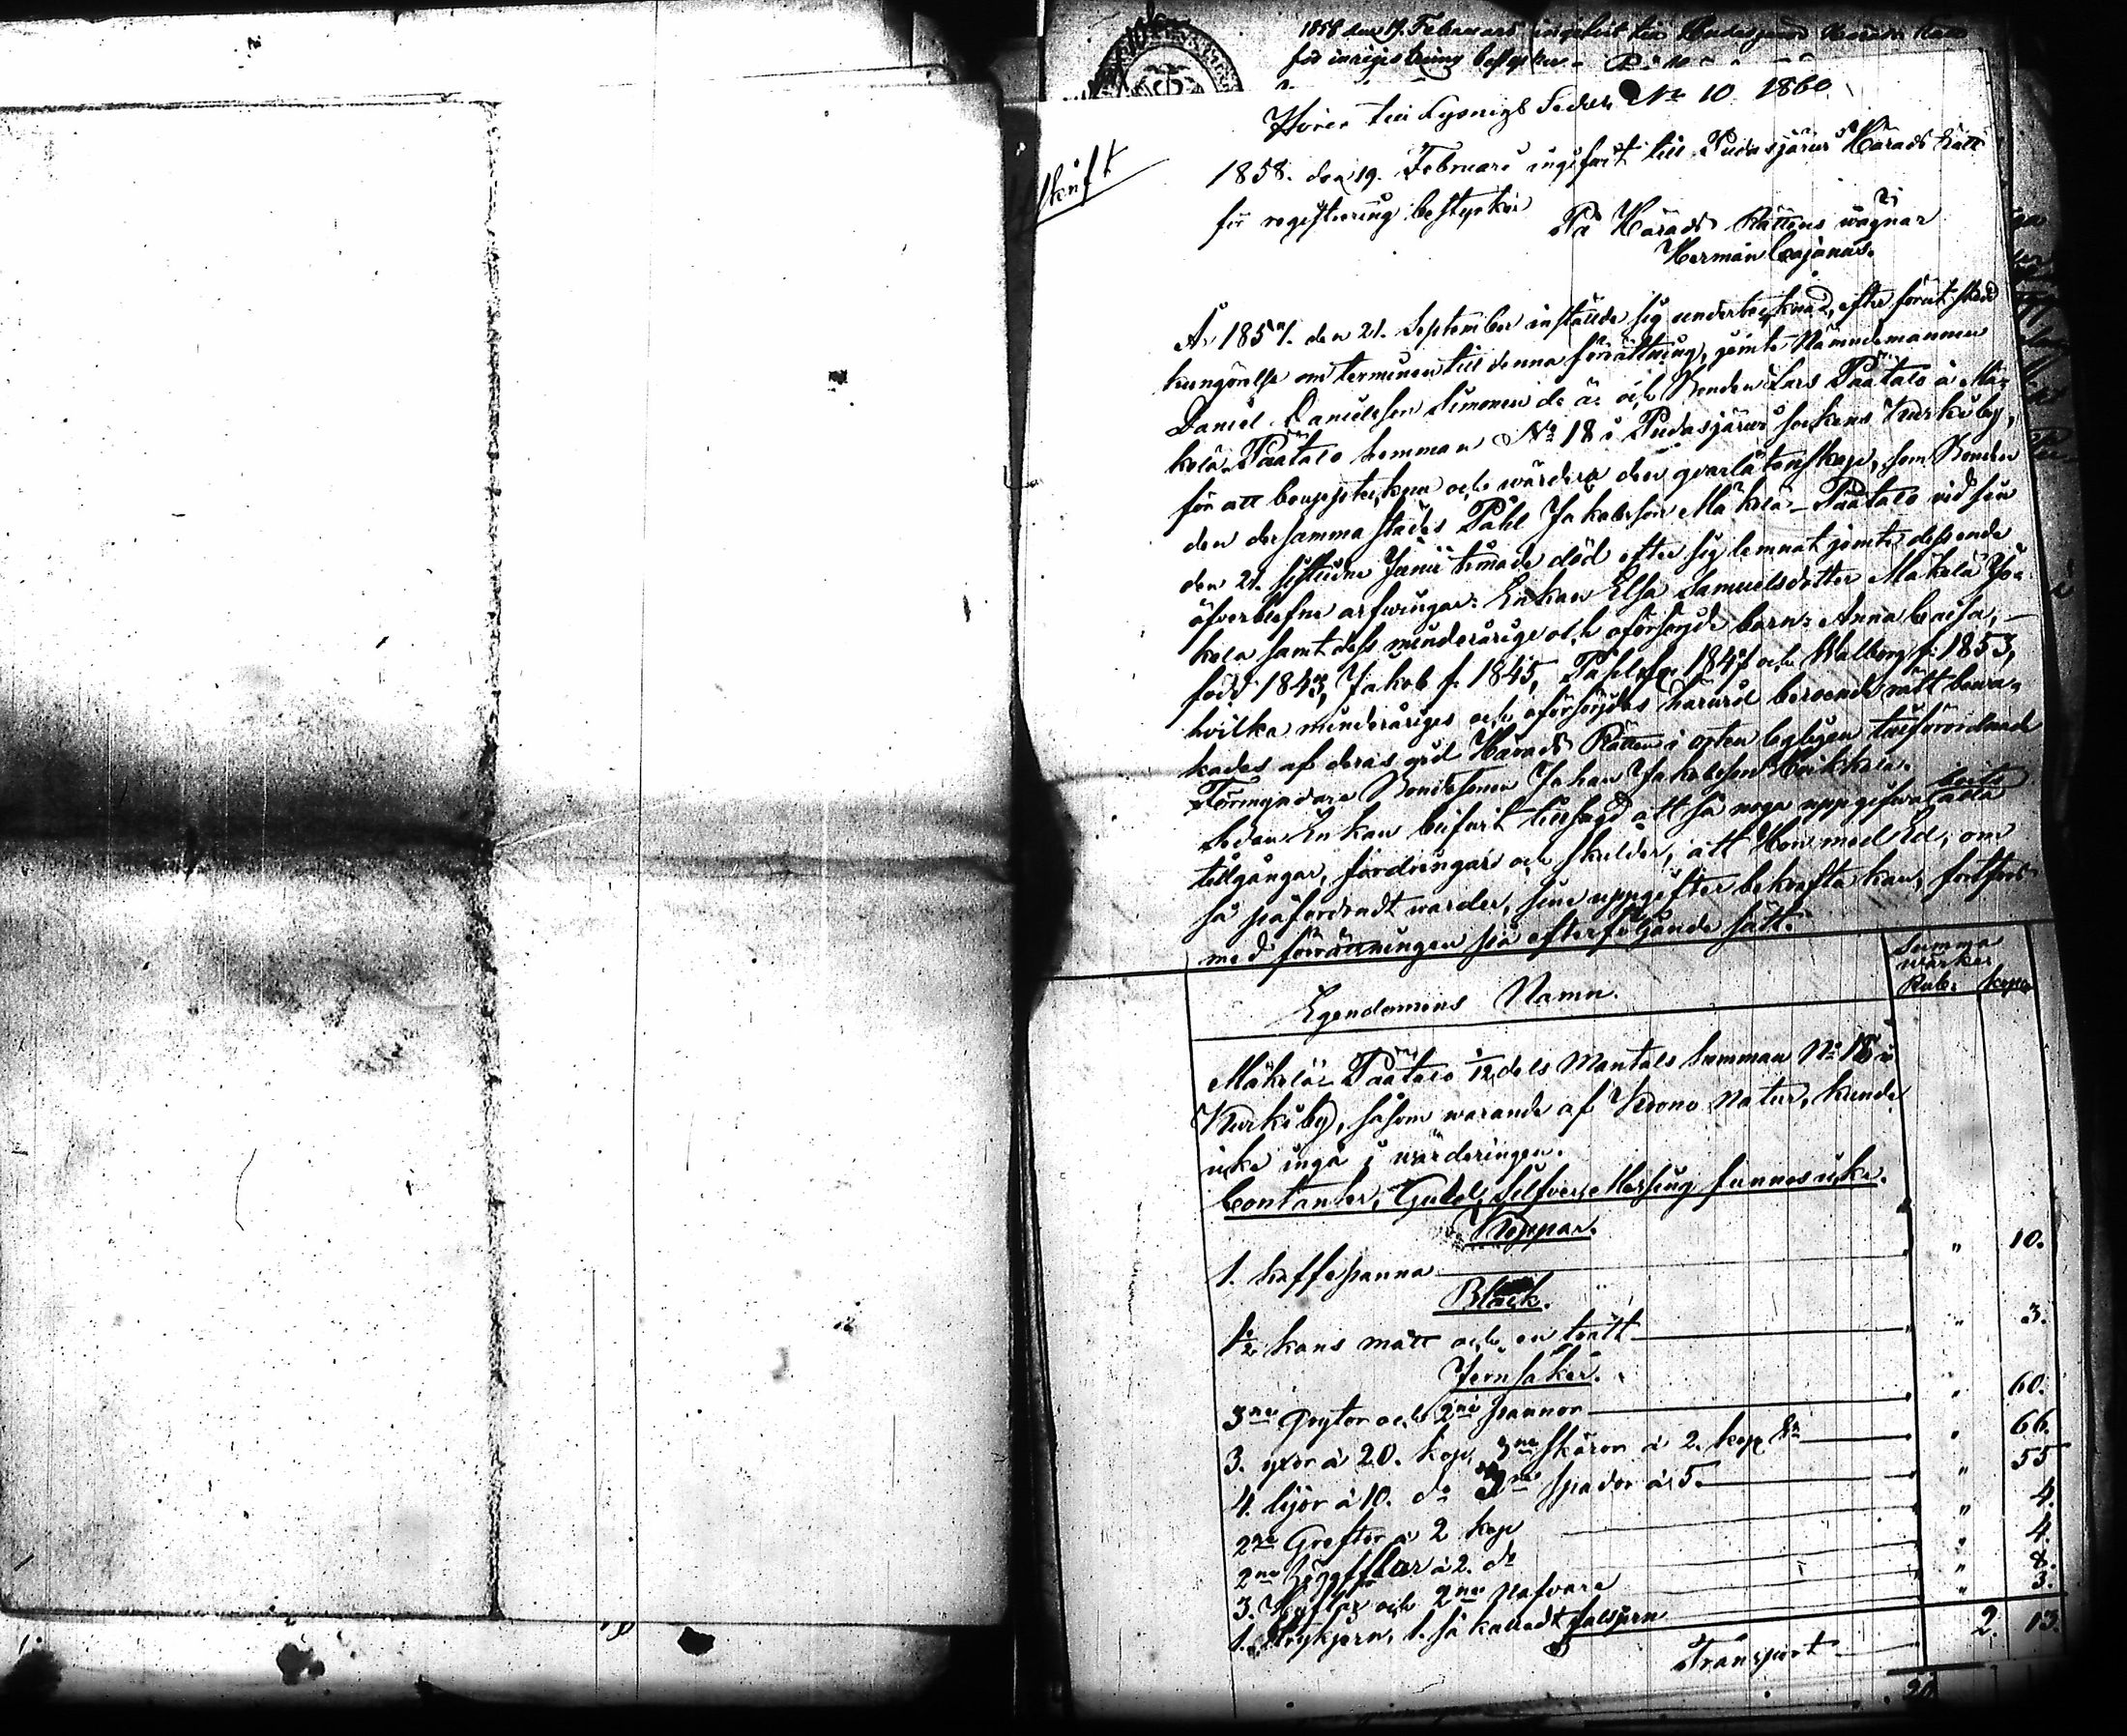 1858 den 19. Februari ingifvit till Pudasjervi Härads Rätt
för inregistrering bestyrker
Hörer till Lysnings Sedeln No 10 1860
skrift
1858. den 19. Februari ingifwit till Pudasjärwi Härads Rätt
för registrering, bestyrker
På Härads Rättens wägnar
Herman Cajanus.
År 1857. den 21. September inställde sig undertecknad, efter förut skedd
kungörelse om terminen till denna förrättning, jemte Nämndemannen
Daniel Danielsson Simonen d. ä. och Bonden Lars Päätalo å Mä-
kelä-Päätalo hemman No 18 i Pudasjärwi sockens Kurkiby,
för att bouppteckna och wärdera den qvarlåtenskap, som Bonden
den dersammastädes Påhl Jakobsson Mäkelä-Päätalo wid sin
den 21. sistledne Junii timade död efter sig lemnat jemte dess ende
öfverblefne arfwingar: Enkan Elsa Samuelsdotter Mäkelä
samt dess minderåriga och oförsörjde barn: Anna Caisa, -
född 1843, Jakob f. 1845, Påhl f. 1847 och Walborg f. 1853,
hvilka minderåriges och oförsörjdes härwid beroende rätt bewa-
kades af deras wid Härads Rätten i orten lagligen tillförordnade
Förmyndare Bondesonen Johan Jakobsson Heikkilä.
Sedan Enkan blifwit tillsagd att så noga uppgifwa alla boets
tillgångar, fordringar och skulder, att Hon med Ed, om
så påfordradt warder, sine uppgifter bekräfta kan, fortfors
med förrättningen på efterföljande sätt.
Egendomens Namn.
Summa
wärker
Rub. Kop.
Mäkelä-Päätalo 1/12 dels Mantals hemman No 18 i
Kurkiby, såsom warande af Krono Natur, kunde
icke ingå i wärderingen.
Contanter, Guld, Silfver, Messing funnos icke.
Koppar.
1. kaffepanna " 10.
Bläck.
1/2 kans mått och en tratt " 3.
Jernsaker.
3ne Grytor och 2ne pannor " 60.
3. yxor à 20. kop, 3ne skäror à 2. kop st " 66.
4. lijor à 10. do 3ne spador à 5. " 55
2ne Greftor à 2 kop " 4.
2ne à 2. do " 4.
3. Hyflar och 2ne Nafvare " 8.
1. Strykjern, 1. så kalladt falsjern " 3.
Transport 2. 13.